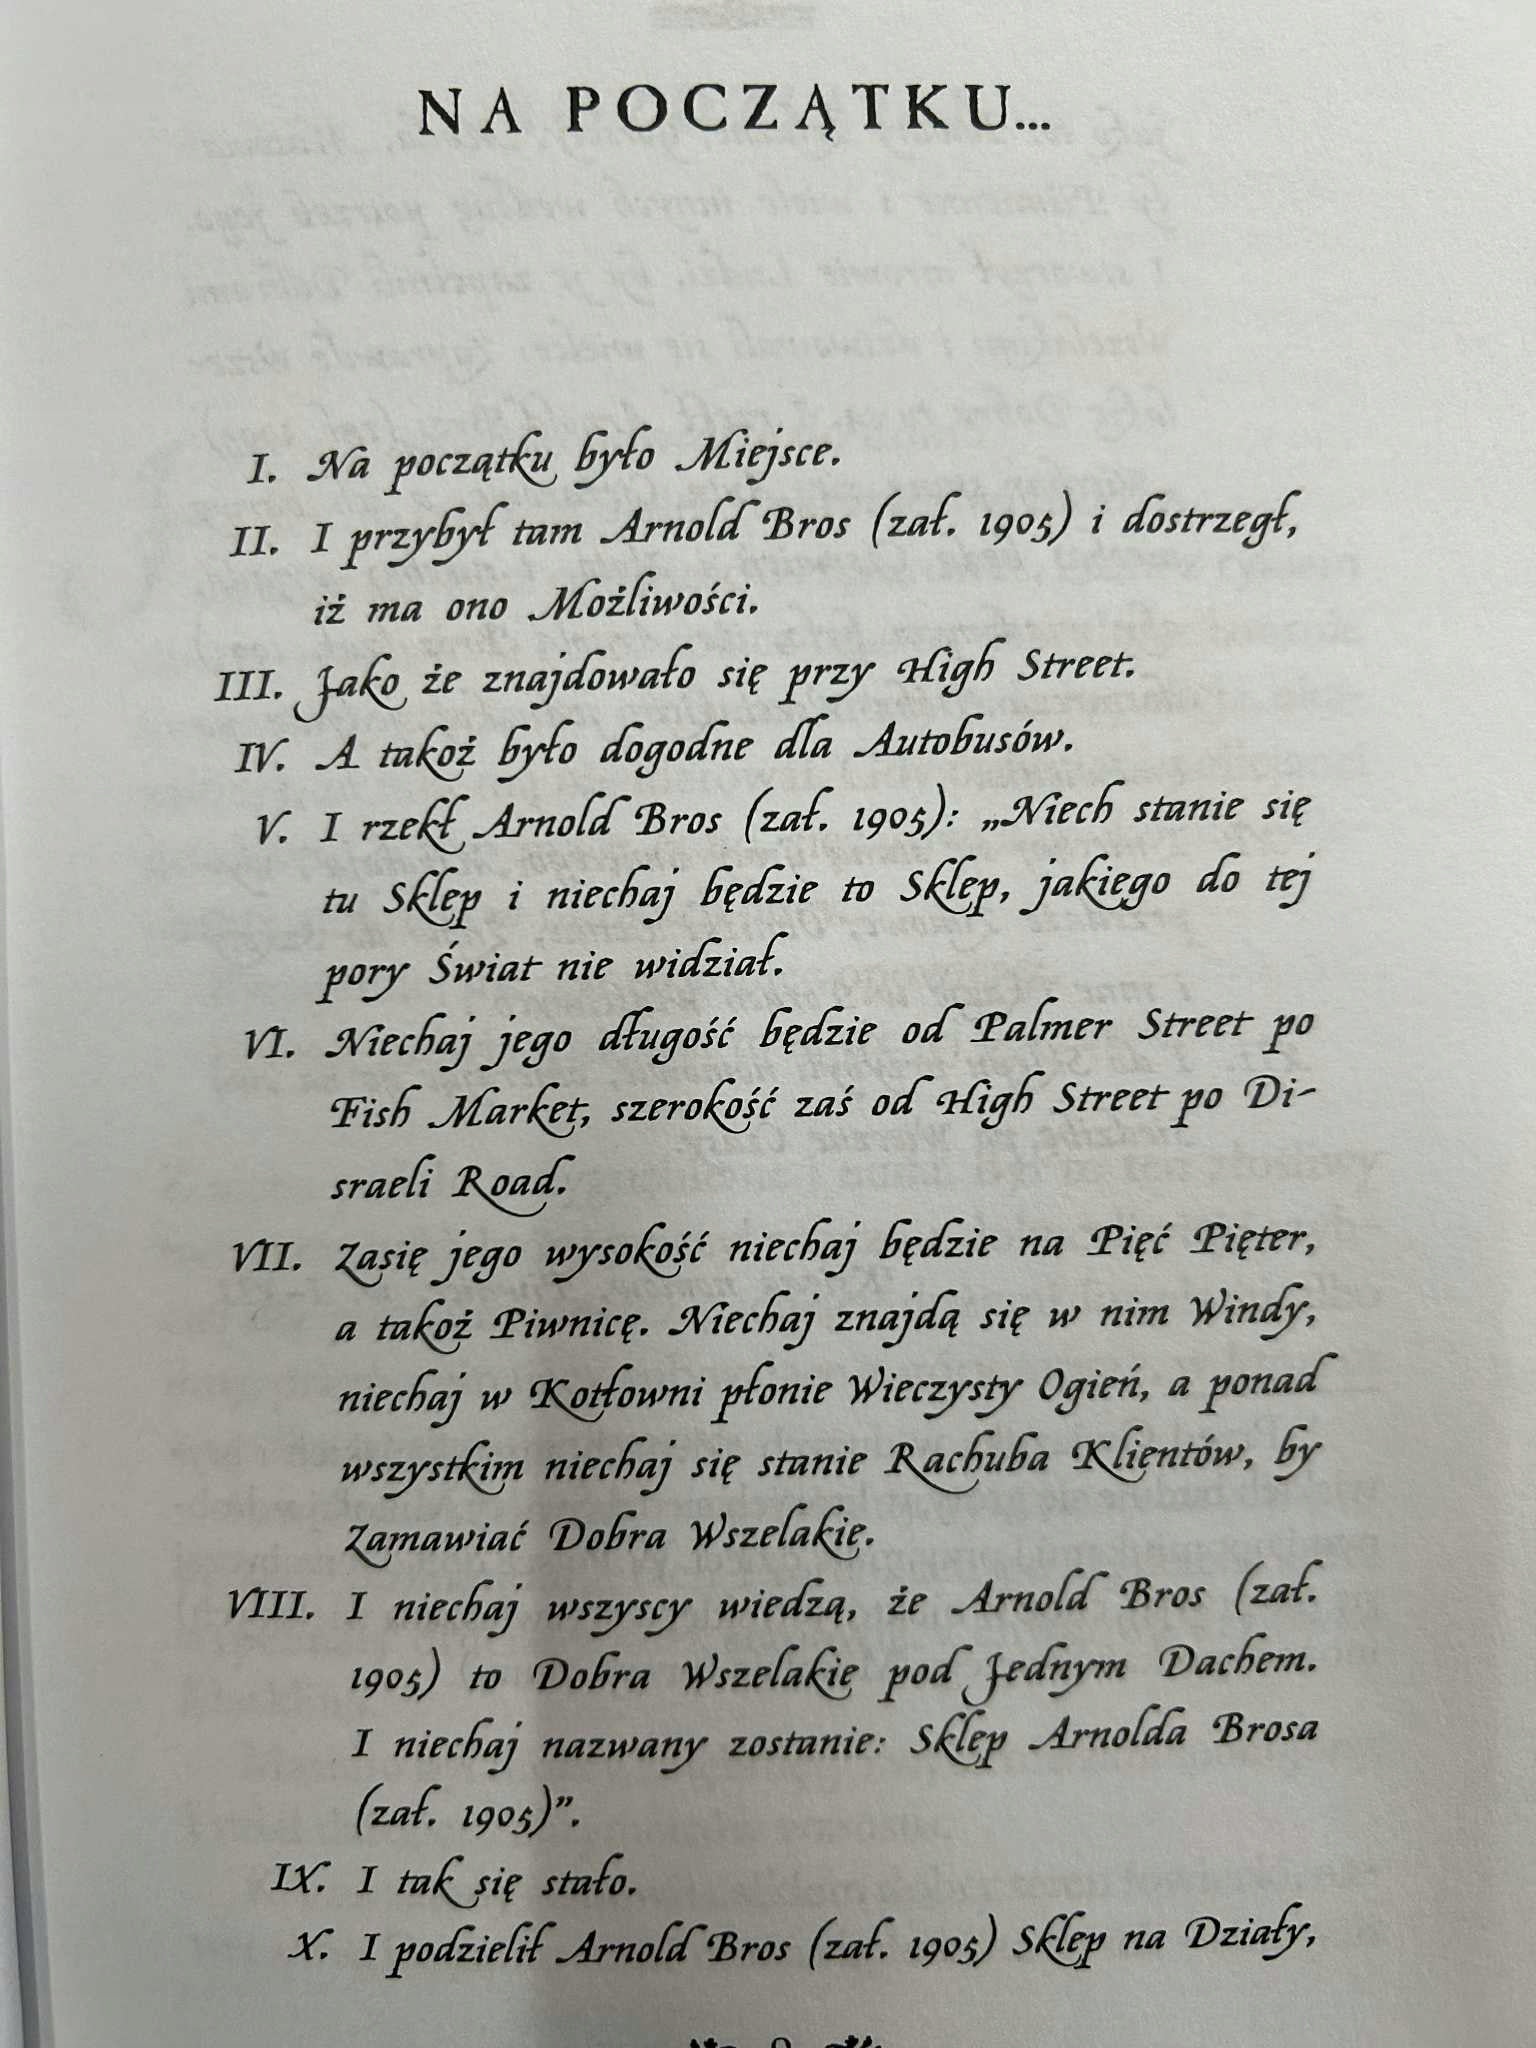 NA POCZĄTKU...
I. Na początku było Miejsce.
II. I przybył tam Arnold Bros (zał. 1905) i dostrzegł,
iż ma ono Możliwości.
III. Jako że znajdowało się przy High Street.
IV. A takoż było dogodne dla Autobusów.
V. I rzekł Arnold Bros (zał. 1905): „Niech stanie się
tu Sklep i niechaj będzie to Sklep, jakiego do tej
pory Świat nie widział.
VI. Niechaj jego długość będzie od Palmer Street po
Fish Market, szerokość zaś od High Street po Di-
sraeli Road.
VII. Zasię jego wysokość niechaj będzie na Pięć Pięter,
a takoż Piwnicę. Niechaj znajdą się w nim Windy,
niechaj w Kotłowni płonie Wieczysty Ogień, a ponad
wszystkim niechaj się stanie Rachuba Klientów, by
Zamawiać Dobra Wszelakie.
VIII. I niechaj wszyscy wiedzą, że Arnold Bros (zał.
1905) to Dobra Wszelakie pod Jednym Dachem.
I niechaj nazwany zostanie: Sklep Arnolda Brosa
(zał. 1905)”.
IX. I tak się stało.
X. I podzielił Arnold Bros (zał. 1905) Sklep na Działy,